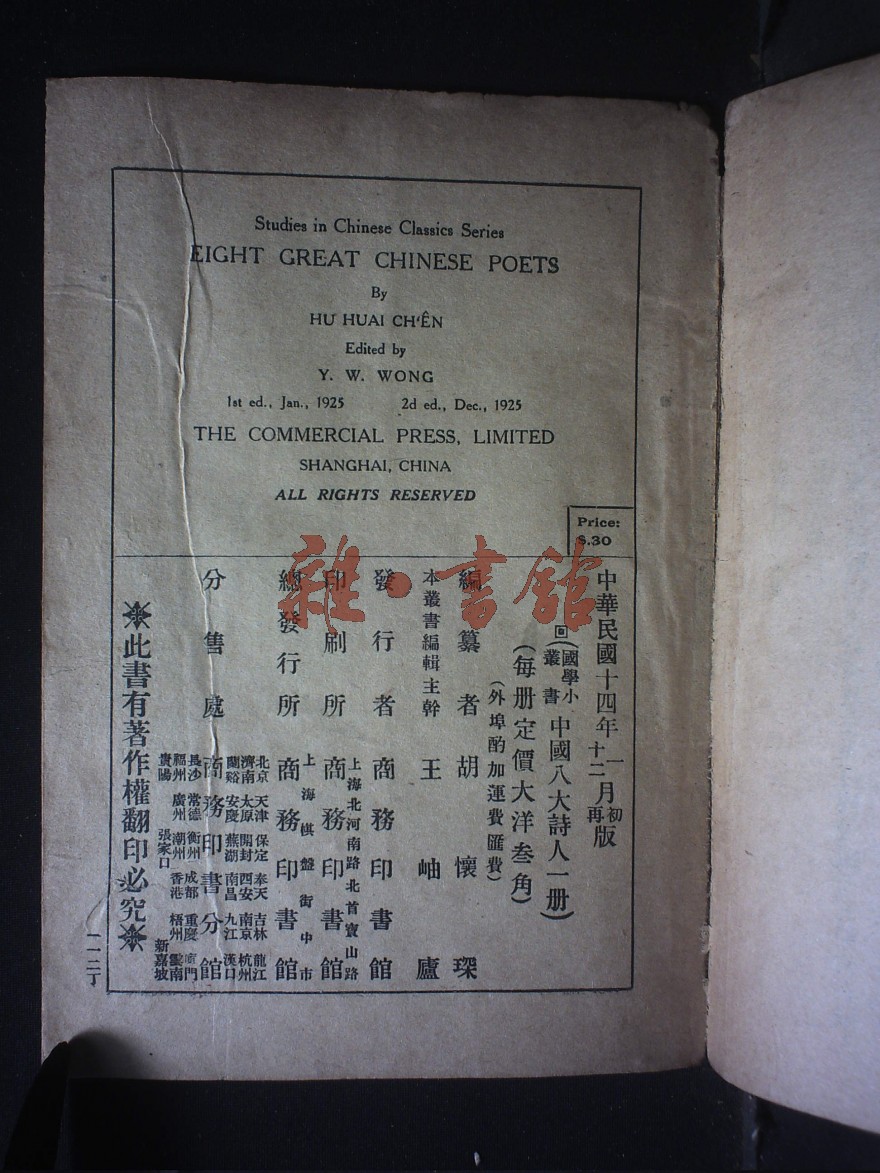 Studies in Chinese Classics Series
EIGHT GREAT CHINESE POETS
By
HU HUAI CH‘ÊN
Edited by
Y. W. WONG
1st ed., Jan., 1925 2d ed., Dec., 1925
THE COMMERCIAL PRESS, LIMITED
SHANGHAI, CHINA
ALL RIGHTS RESERVED
Price:
$.30
雜·書館
中華民國十四年
一月初版
十二月再版
回(國學小叢書 中國八大詩人一册)
(每册定價大洋叁角)
(外埠酌加運費匯費)
編纂者 胡懷琛
本叢書編輯主幹 王岫廬
發行者 商務印書館
上海北河南路北首寶山路
印刷所 商務印書館
上海棋盤街中市
總發行所 商務印書館
北京 天津 保定 奉天 吉林 龍江
濟南 太原 開封 西安 南京 杭州
蘭谿 安慶 蕪湖 南昌 九江 漢口
分售處 商務印書分館
長沙 常德 衡州 成都 重慶 門
福州 廣州 潮州 香港 梧州 雲南
貴陽 張家口 新嘉坡
※此書有著作權翻印必究※